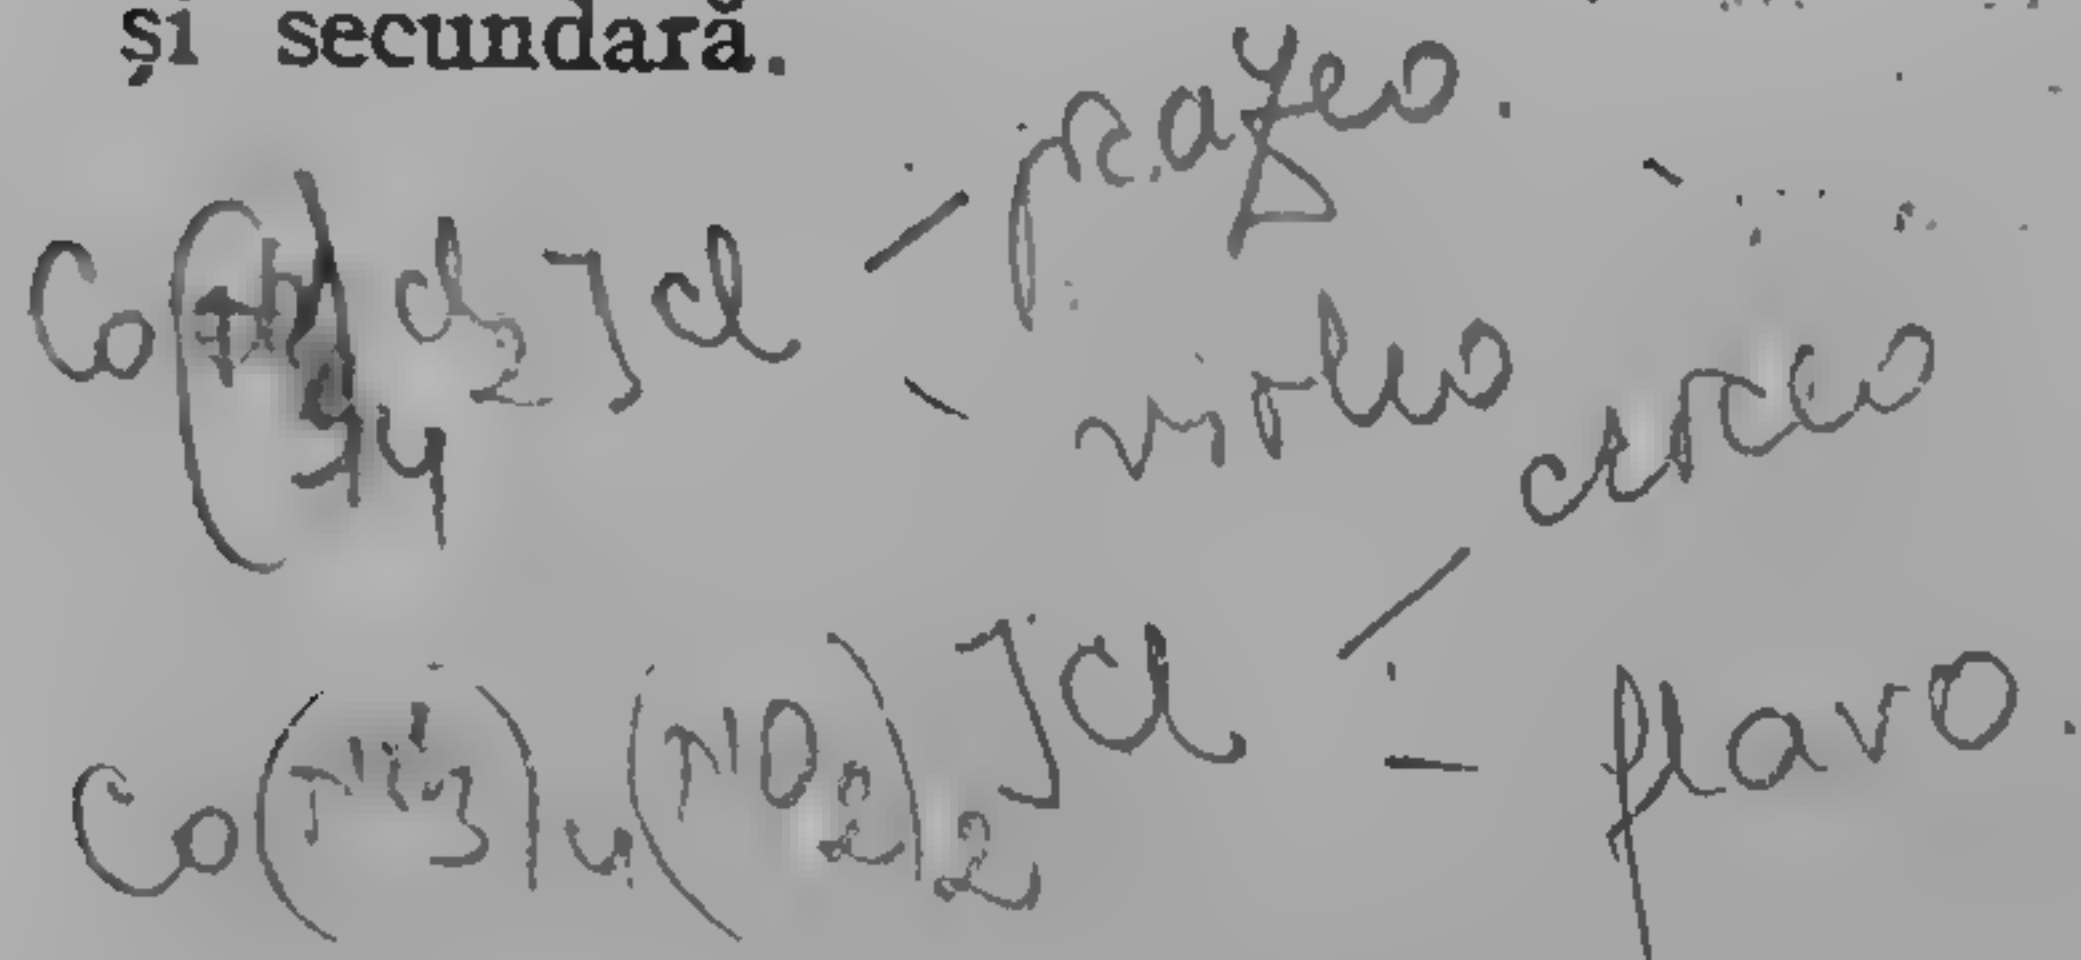 și secundară.
Co(NH3)4 Cl2]Cl - prazeo.
- violeo
Co(NH3)4(NO2)2]Cl / croceo
- flavo.